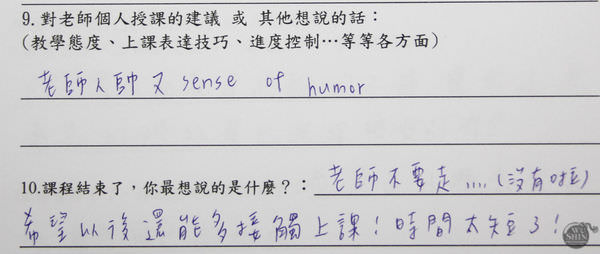 9. 對老師個人授課的建議 或 其他想說的話：
(教學態度、上課表達技巧、進度控制…等等各方面)
老師人帥又 sense of humor
10.課程結束了，你最想說的是什麼？：老師不要走....(沒有啦)
希望以後還能多接觸上課！時間太短了！